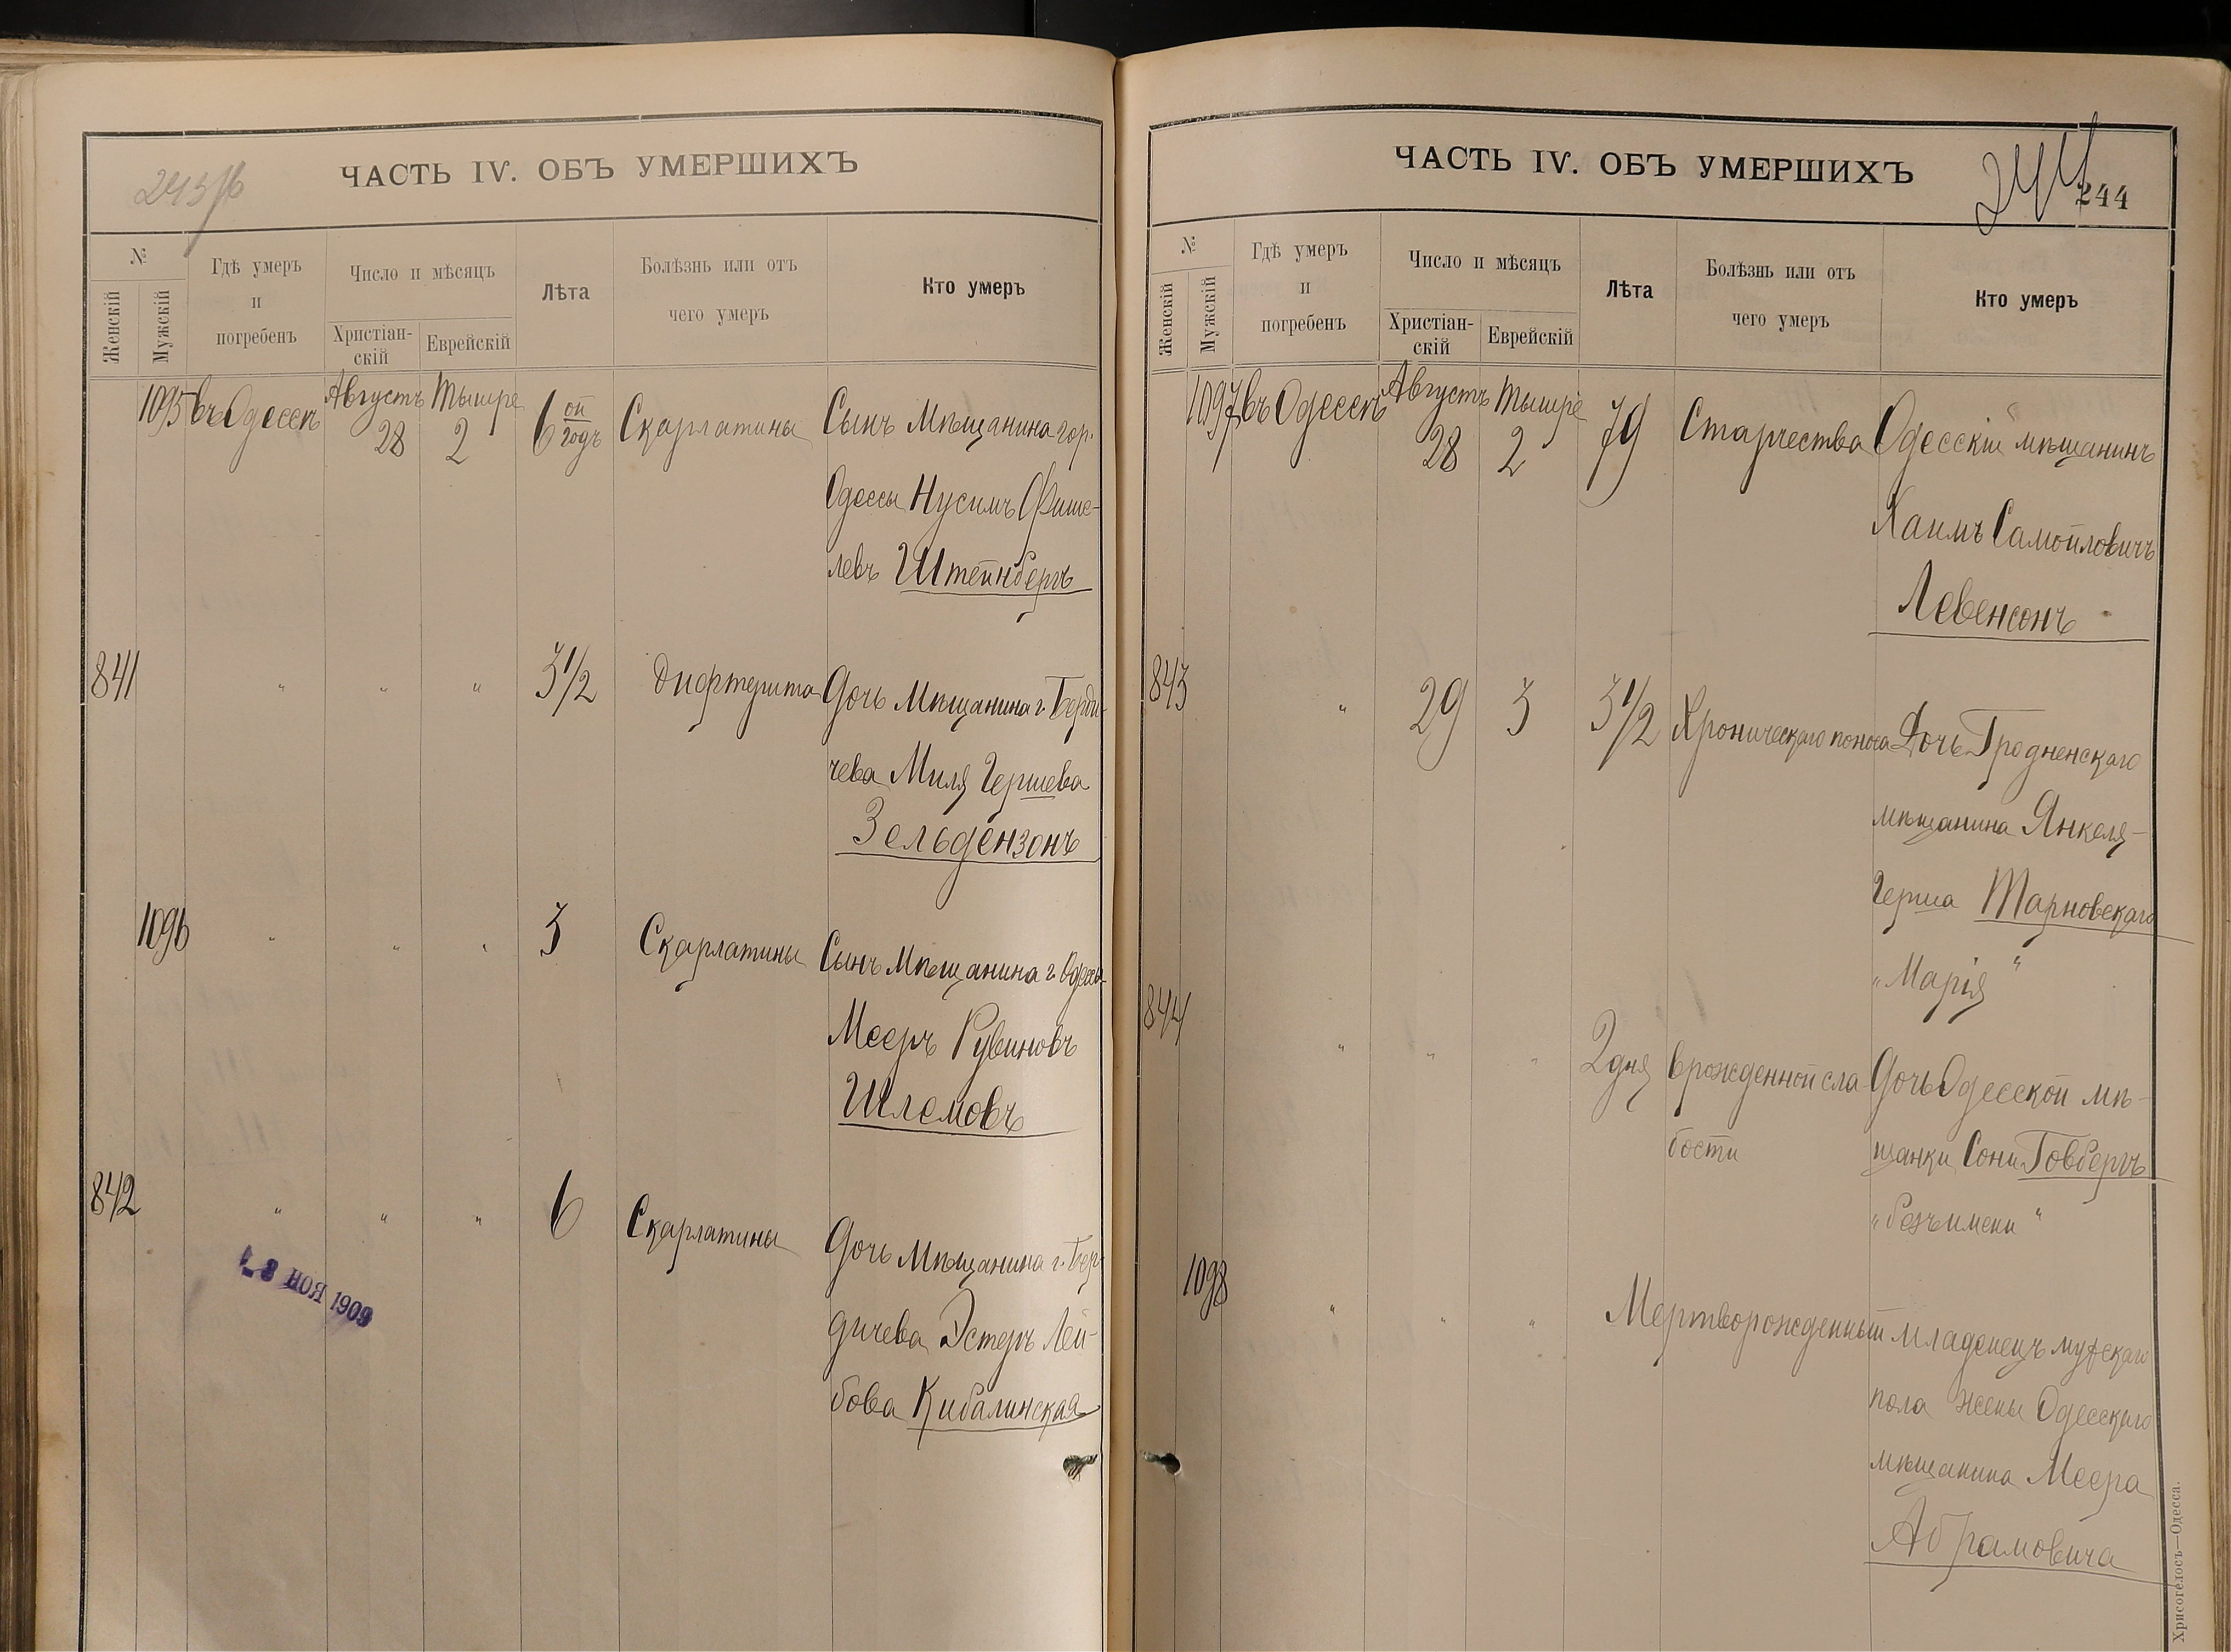 243 об
ЧАСТЬ IV. ОБЪ УМЕРШИХЪ
№
Женскій
Мужскій
Гдѣ умеръ
и
погребенъ
Число и мѣсяцъ
Христіан-
скій
Еврейскій
Лѣта
Болѣзнь или отъ
чего умеръ
Кто умеръ
1095 въ Одессѣ Августъ 28 Тышре 2 6 ой годъ Скарлатины Сынъ Мѣщанина гор.
Одессы Нусимъ Фише-
левъ Штейнбергъ
841 " " " 3 1/2 Дифтерита Дочь Мѣщанина г. Берди-
чева Миля Гершева
Зельдензонъ
1096 " " " 3 Скарлатины Сынъ Мѣщанина г. Одессы
Мееръ Рувиновъ
Шлемовъ
842 " " " 6 Скарлатины Дочь Мѣщанина г. Бер-
дичева Эстеръ Лей-
бова Кибалинская
- 8 НОЯ 1909
ЧАСТЬ IV. ОБЪ УМЕРШИХЪ
244
244
№
Женскій
Мужскій
Гдѣ умеръ
и
погребенъ
Число и мѣсяцъ
Христіан-
скій
Еврейскій
Лѣта
Болѣзнь или отъ
чего умеръ
Кто умеръ
1097 въ Одессѣ Августъ 28 Тышре 2 79 Старчества Одесскій мѣщанинъ
Хаимъ Самойловичъ
Левенсонъ
843 " 29 3 3 1/2 Хроническаго поноса Дочь Гродненскаго
мѣщанина Янкеля-
Герша Тарновскаго
"Марія"
844 " " " 2 дня врожденной сла- Дочь Одесской мѣ-
бости щанки Сони Говбергъ
"безъ имени"
1098 " " " Мертворожденный младенецъ мужскаго
пола жены Одесскаго
мѣщанина Меера
Абрамовича
Хрисогелосъ—Одесса.